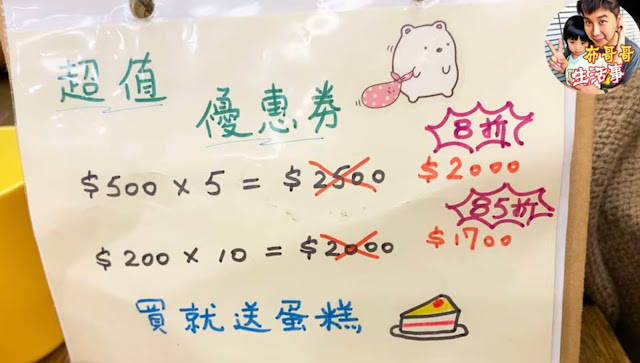 布哥哥
生活事
超值
優惠券
8折
$500 × 5 = $2500 $2000
85折
$200 × 10 = $2000 $1700
買就送蛋糕